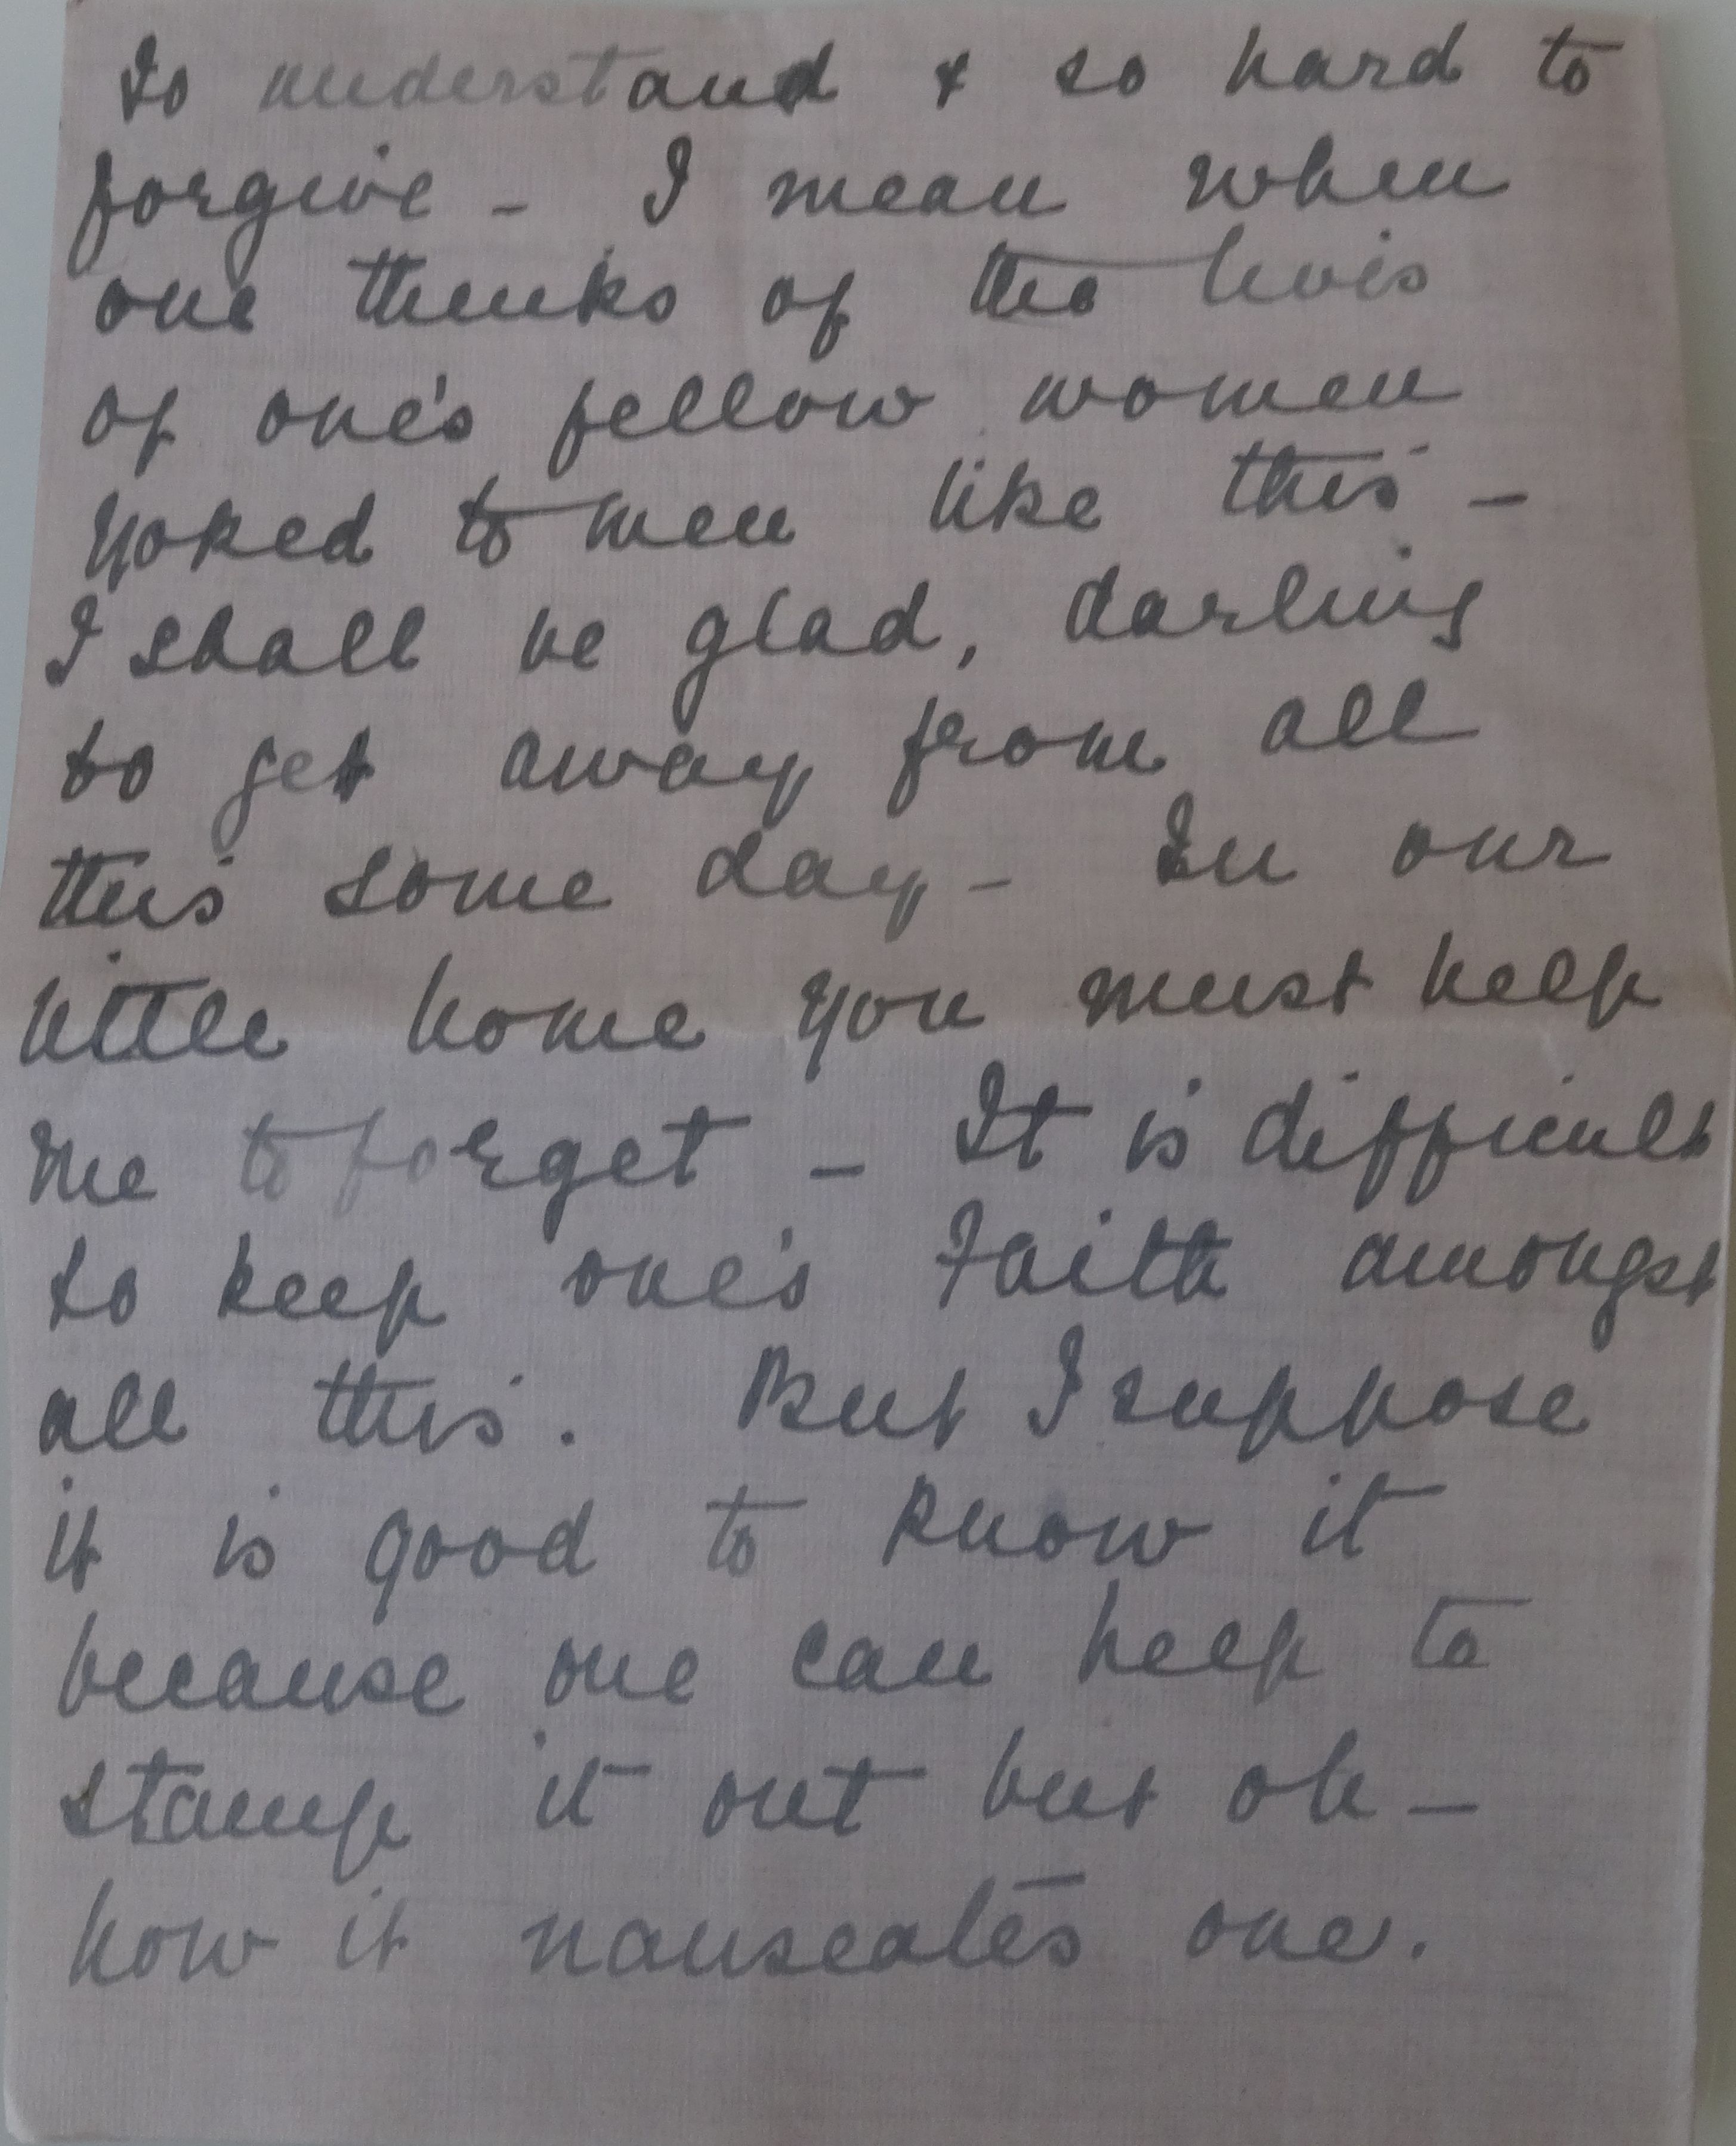 to understand & so hard to
forgive - I mean when
one thinks of the lives
of one's fellow women
yoked to men like this -
I shall be glad, darling
to get away from all
this some day - In our
little home you must help
me to forget - It is difficult
to keep one's Faith amongst
all this. But I suppose
it is good to know it
because one can help to
stamp it out but oh -
how it nauseates one.